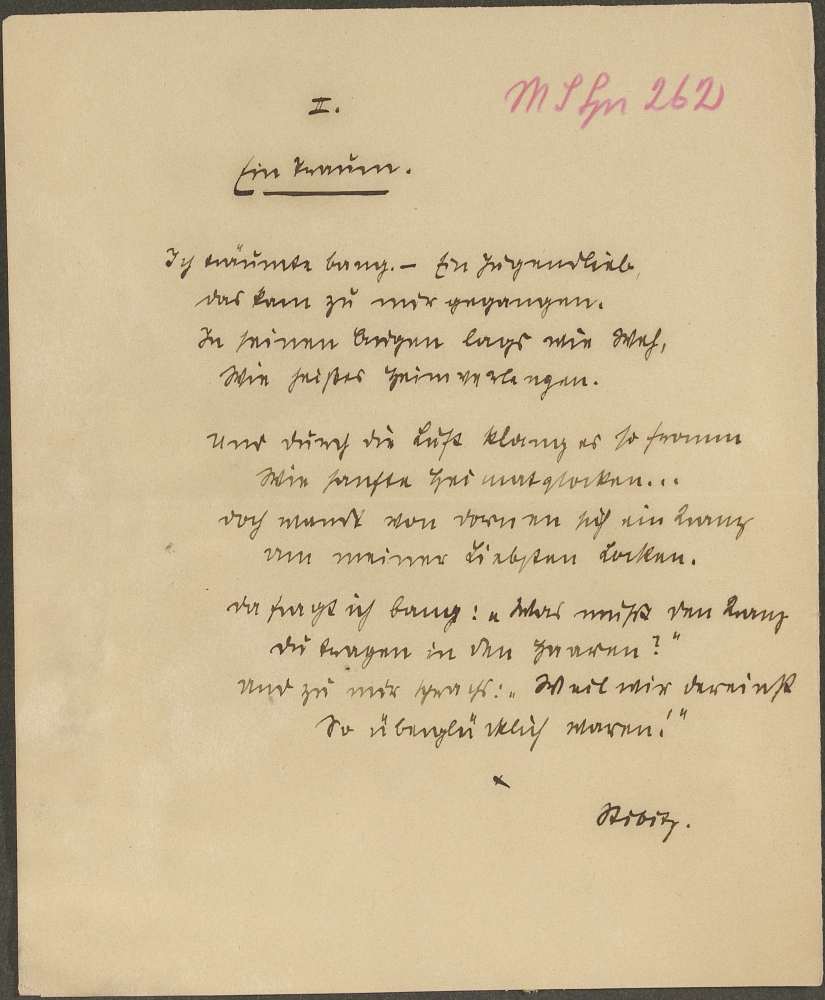 II.
Ein Traum.
Ich träumte bang. – Ein Jugendlieb,
das kam zu mir gegangen.
In seinen Augen lags wie Weh,
Wie heißes Heimverlangen.
Und durch die Luft klang es so fromm
Wie sanfte Heimatglocken...
doch wandt von Dornen sich ein Kranz
um meiner Liebsten Locken.
da fragt ich bang: „Was mußt den Kranz
du tragen in den Haaren?"
Und zu mir sprachs: „Weil wir dereinst
So überglücklich waren!"